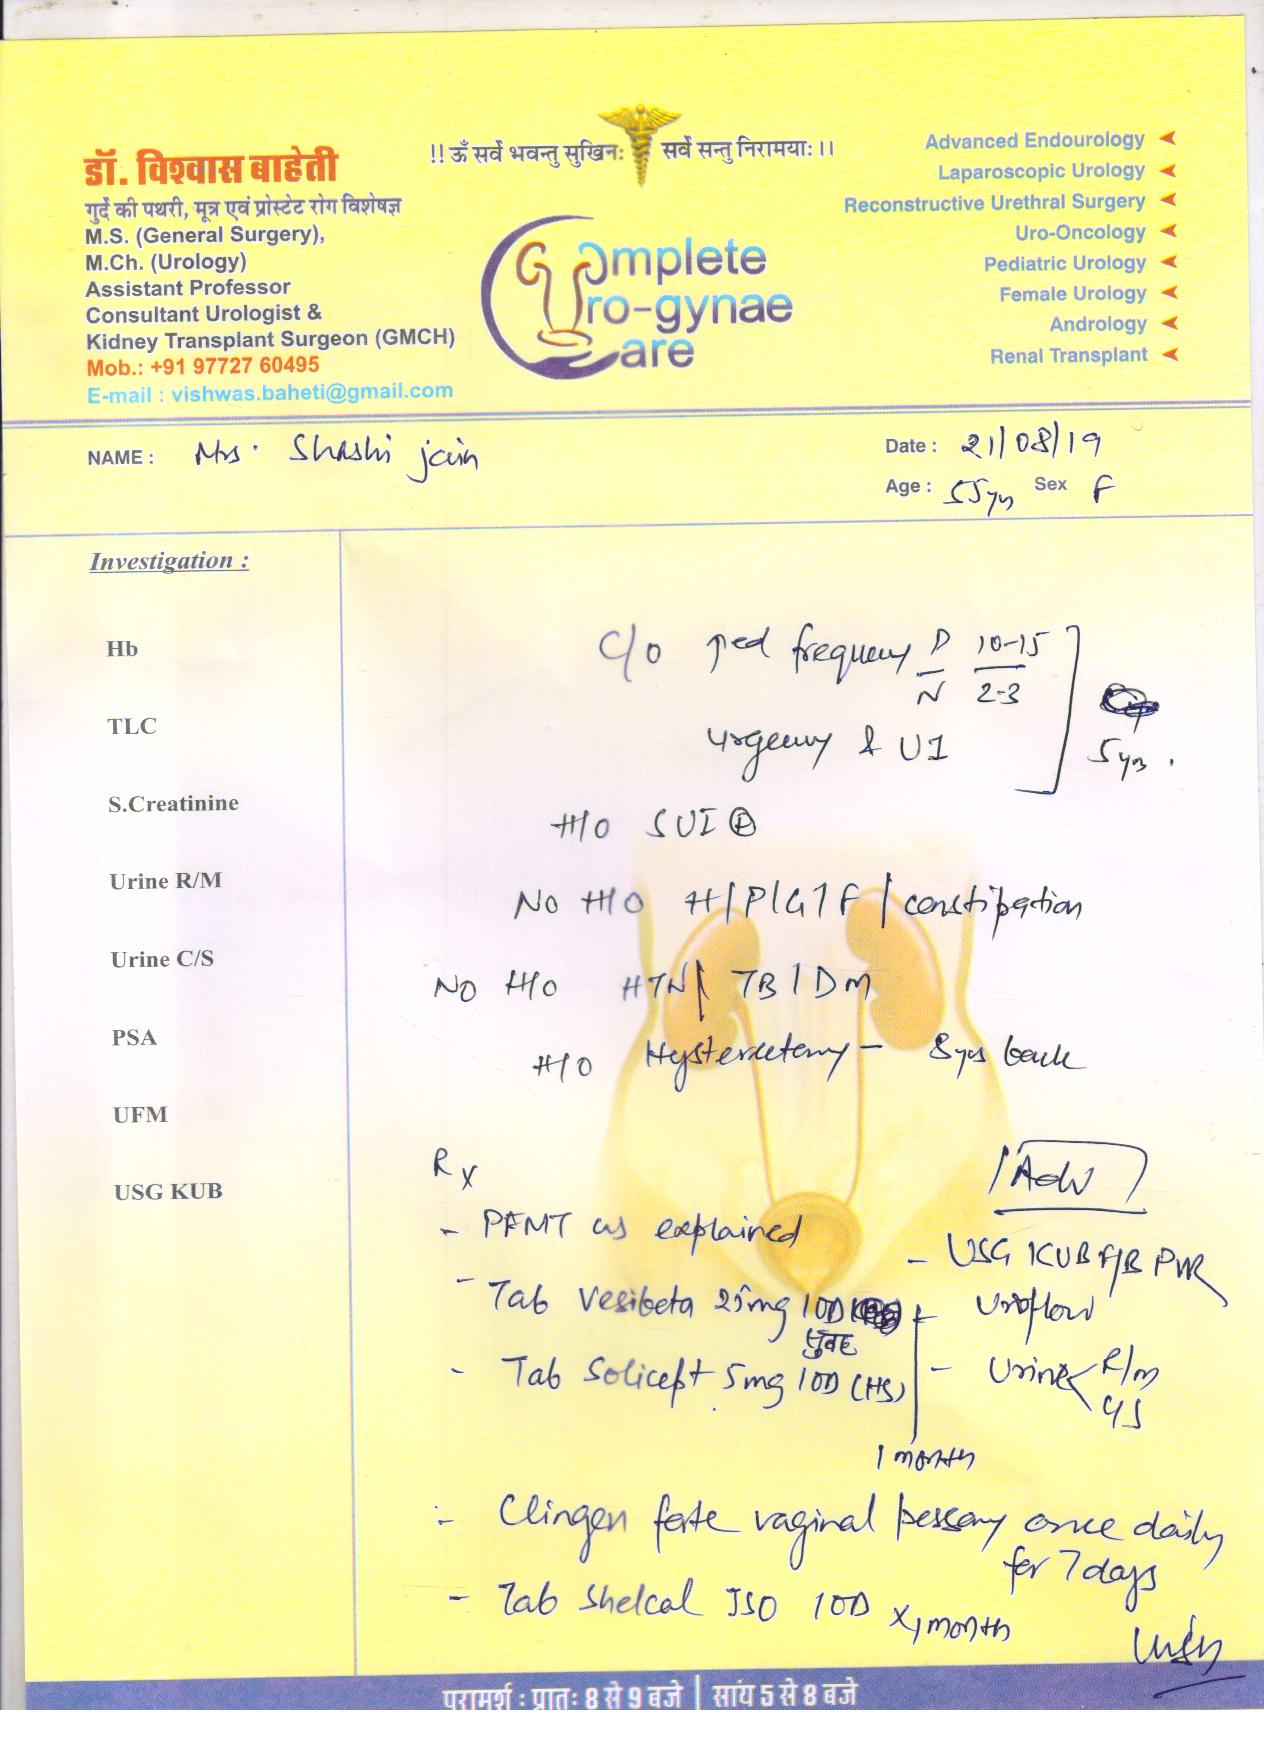 !! ॐ सर्वे भवन्तु सुखिनः सर्वे सन्तु निरामयाः ।।
डॉ. विश्वास बाहेती
गुर्दे की पथरी, मूत्र एवं प्रोस्टेट रोग विशेषज्ञ
M.S. (General Surgery),
M.Ch. (Urology)
Assistant Professor
Consultant Urologist &
Kidney Transplant Surgeon (GMCH)
Mob.: +91 97727 60495
E-mail : vishwas.baheti@gmail.com
Complete
Uro-gynae
Care
Advanced Endourology
Laparoscopic Urology
Reconstructive Urethral Surgery
Uro-Oncology
Pediatric Urology
Female Urology
Andrology
Renal Transplant
NAME : Mrs. Shashi jain
Date : 21/08/19
Age : 55yrs Sex F
Investigation :
Hb
TLC
S.Creatinine
Urine R/M
Urine C/S
PSA
UFM
USG KUB
C/O ↑ed frequency D/N 10-15/2-3
urgency & UI
5 yrs.
H/O SUI ⊕
No H/O H/P/G/F/constipation
NO H/O HTN/ TB / DM
H/O Hysterectomy - 8 yrs back
Rx
- PFMT as explained
- Tab Vesibeta 25mg 1OD
सुबह
- Tab Solicept 5mg 1OD (HS)
1 month
- Clingen forte vaginal pessary once daily
for 7 days
- Tab Shelcal ISO 1OD x 1 month
Adv
- USG KUB F/B PVR
- Uroflow
- Urine R/m
C/S
परामर्श : प्रातः 8 से 9 बजे | सांय 5 से 8 बजे